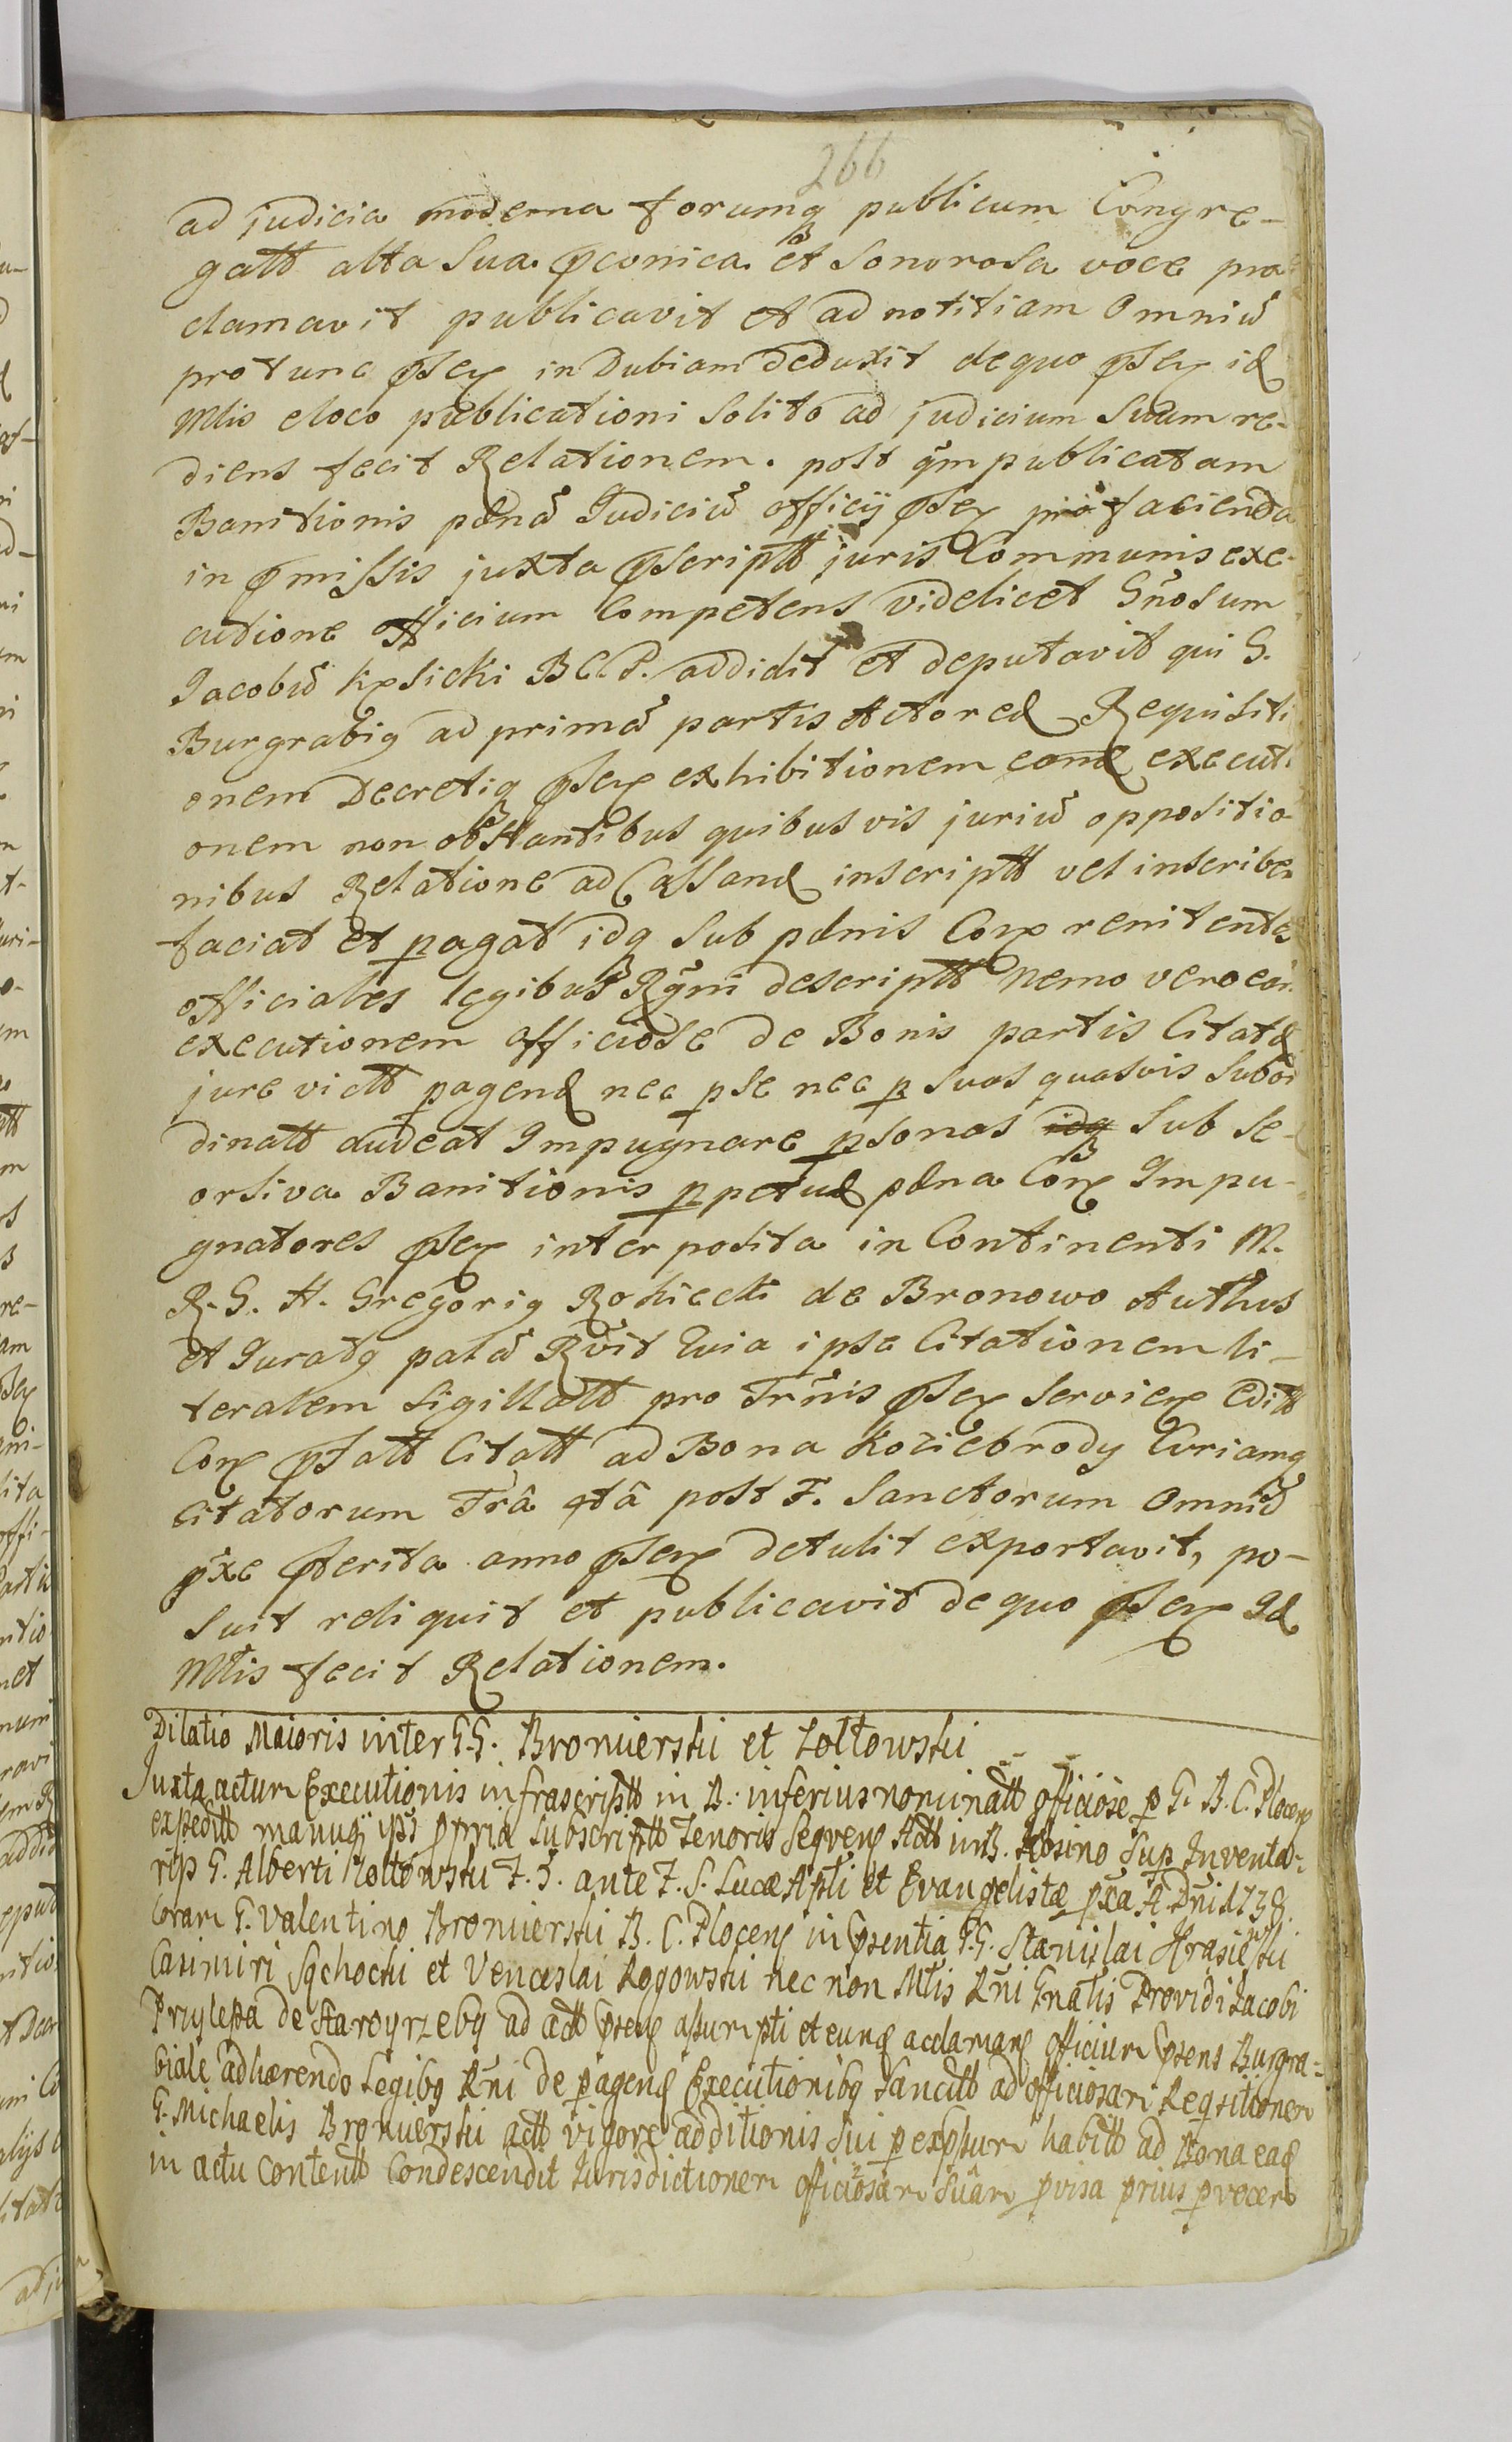 266
ad judicia moderna forumq publicum Congre-
gatt alta Sua pconica et Sonorosa voce pro
clamavit publicavit et ad notitiam Omniũ
protunc psen in Dubiam deduxit de quo psen id
Mtis eloco publicationi Solito ad judicium Suum re-
diens fecit Relationem. post qm publicatam
Banitionis pænã Judiciũ officij psen pro facienda
in pmissis juxta pscriptt juris Communis exe-
cutione officium Competens videlicet Gñosum
Jacobũ BCP. addidit et deputavit qui G.
Burgrabig ad primã partis Actoreæ Requisiti
onem Decretiq psen exhibitionem eand executi
onem non obstantibus quibusvis juriũ oppositio
nibus Relatione ad Cassand inscriptt vel inscribe
faciat et pagat idq Sub pænis Con renitentes
officiales legibus Rgni descriptt Nemo vero eã
executionem officiose de Bonis partis Citatæ
jure victt pagend nec p se nec p Suas quasvis Subor
dinatt audeat Impugnare psonas idq Sub Se-
orsiva Banitionis ppetuæ pæna Con Impu-
gnatores psen interposita in Continenti M.
R. G. H. Gregorig Rokicki de Bronowo Authus
et Juratg palã Rvit Quia ipse Citationem li-
teralem Sigillatt pro Trñis psen Servien Editt
Con pfatt Citatt ad Bona Koziebrody Curiamq
Citatorum Frâ qtâ post F. Sanctorum Omniũ
pxe pterita anno psen detulit exportavit, po-
suit reliquit et publicavit de quo psen Id
Mtis fecit Relationem.
Dilatio Maioris inter G.G. Bromierski et Zołtowski
Juxta actum Executionis infrascriptt in B. inferius nominatt officiose p G. B. C. Plocen
expeditt manuq ipsi ppria Subscriptt Tenoris Seqven Actt in B. Sup Inventa-
G. Alberti Zołtowski F. 5. ante F. S. Lucæ Apti et Evangelistæ pxa A. Dñi 1738.
Coram G. Valentino Bromierski B. C. Plocen in psentia G.G. Stanislai Krasinski
Casimiri Sochocki et Venceslai Rogowski nec non Mtis Rñi Gnalis Providi Jacobi
de Staroyrzeby ad actt psen assumpti et eund acclaman officium psens Burgra-
biale adhærendo Legibg Rñi de pagend Executionibg Sancitt ad officiosam Reqsitionem
G. Michaelis Bromierski actt vigore additionis Sui p expssum habitt ad Bona ead
in actu Contentt Condescendit Jurisdictionem officiosam Suam pvisa prius p vocem